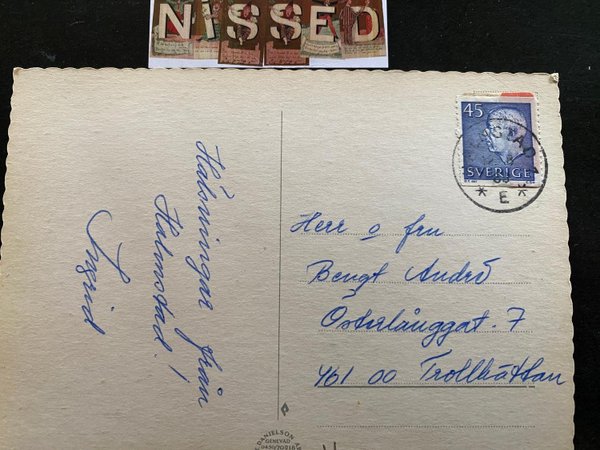 NiSSED
Hälsningar från
Halmstad!
Ingrid
45
SVERIGE
* E *
Herr o fru
Bengt André
Österlånggat. 7
461 00 Trollhättan
DANIELSON
GENEVAD